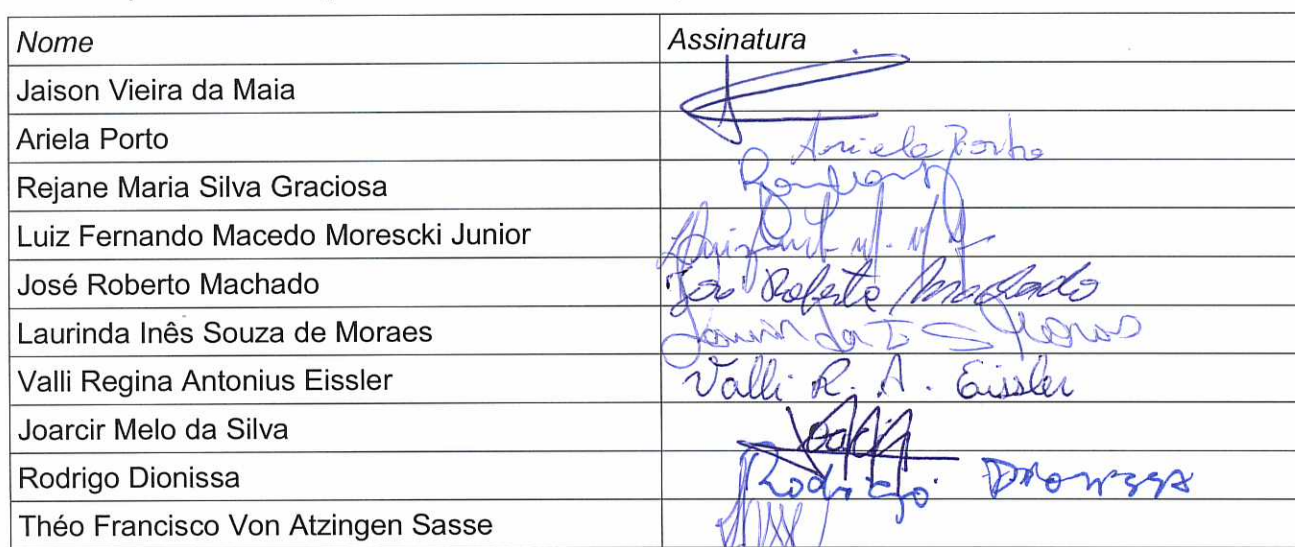 Nome Assinatura
Jaison Vieira da Maia
Ariela Porto Ariela Porto
Rejane Maria Silva Graciosa
Luiz Fernando Macedo Morescki Junior
José Roberto Machado José Roberto Machado
Laurinda Inês Souza de Moraes Laurinda I S Moraes
Valli Regina Antonius Eissler Valli R. A. Eissler
Joarcir Melo da Silva
Rodrigo Dionissa Rodrigo Dionissa
Théo Francisco Von Atzingen Sasse